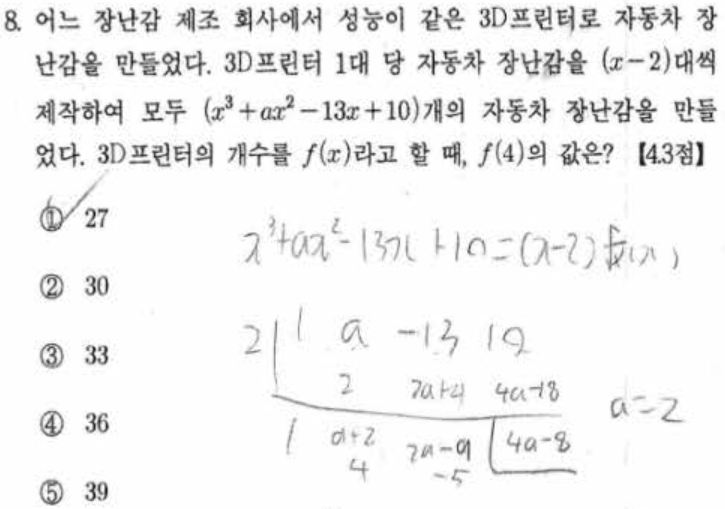 8. 어느 장난감 제조 회사에서 성능이 같은 3D프린터로 자동차 장
난감을 만들었다. 3D프린터 1대 당 자동차 장난감을 (x-2)대씩
제작하여 모두 (x³+ax²-13x+10)개의 자동차 장난감을 만들
었다. 3D프린터의 개수를 f(x)라고 할 때, f(4)의 값은? 【4.3점】
① 27
② 30
③ 33
④ 36
⑤ 39
x³+ax²-13x+10=(x-2)f(x)
2 1 a -13 10
2 2a+4 4a-18
1 a+2 2a-9 4a-8
4 -5
a=2